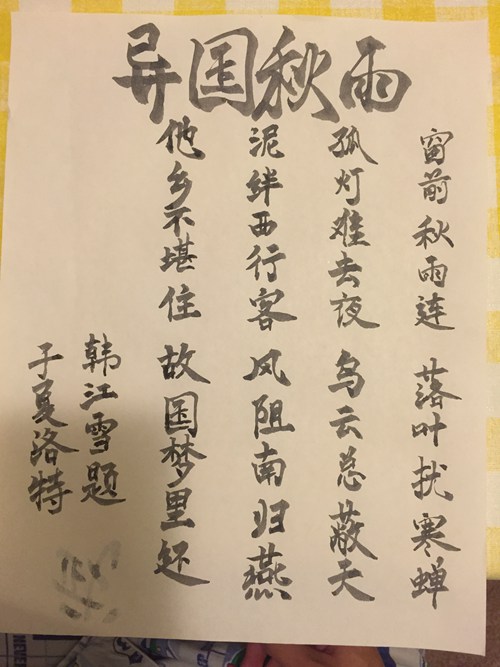 异国秋雨
窗前秋雨连 落叶扰寒蝉
孤灯难去夜 乌云总蔽天
泥绊西行客 风阻南归燕
他乡不堪住 故国梦里还
韩江雪题
于夏洛特